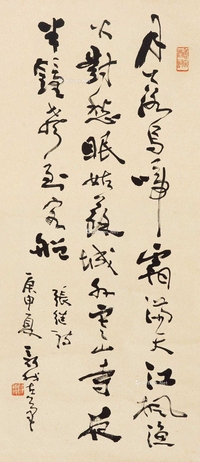 月落烏啼霜滿天江楓漁
火對愁眠姑蘇城外寒山寺夜
半鐘聲到客船
張继詩
庚申夏新我左筆